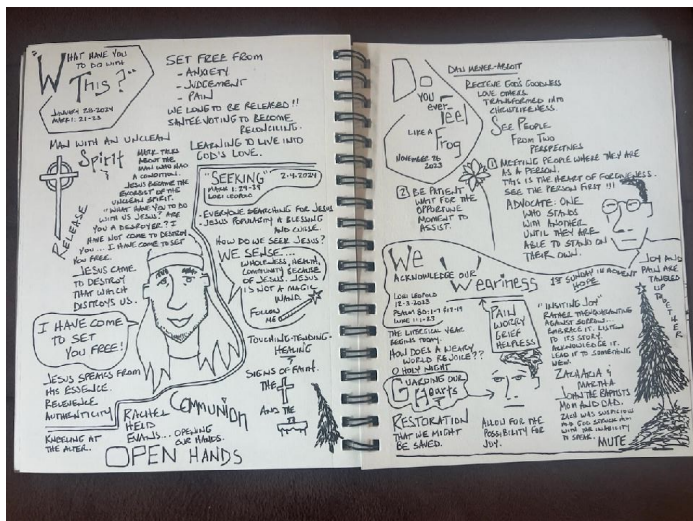 "WHAT HAVE YOU
TO DO WITH
THIS?"
JANUARY 28-2024
MARK 1:21-28
SET FREE FROM
- ANXIETY
- JUDGEMENT
- PAIN
WE LONG TO BE RELEASED!!
SANTEE VOTING TO BECOME
RECONCILING.
LEARNING TO LIVE INTO
GOD'S LOVE.
MAN WITH AN UNCLEAN
SPIRIT
MARK TALKS
ABOUT THE
MAN WHO HAD
A CONDITION.
JESUS BECAME THE
EXORCIST OF THE
UNCLEAN SPIRIT.
"WHAT HAVE YOU TO DO
WITH US JESUS? ARE
YOU A DESTROYER? I
HAVE NOT COME TO DESTROY
YOU... I HAVE COME TO SET
YOU FREE.
RELEASE
JESUS CAME
TO DESTROY
THAT WHICH
DESTROYS US.
I HAVE COME
TO SET
YOU FREE!
JESUS SPEAKS FROM
HIS ESSENCE.
RELEVENCE
AUTHENTICITY
KNEELING AT
THE ALTER.
RACHEL
HELD
EVANS... OPENING
OUR HANDS.
OPEN HANDS
COMMUNION
"SEEKING" 2-4-2024
MARK 1:29-39
LORI LEOPOLD
- EVERYONE SEARCHING FOR JESUS
- JESUS POPULARITY A BLESSING
AND CURSE.
HOW DO WE SEEK JESUS?
WE SENSE...
WHOLENESS, HEALTH,
COMMUNITY BECAUSE
OF JESUS... JESUS
IS NOT A MAGIC
WAND.
FOLLOW
ME
TOUCHING-TENDING-
HEALING
SIGNS OF FAITH.
THE
AND THE
DO
YOU
EVER
FEEL
LIKE A
FROG
NOVEMBER 26
2023
DAN MEYER-ABBOTT
RECEIVE GOD'S GOODNESS
LOVE OTHERS.
TRANSFORMED INTO
CHRISTLIKENESS.
SEE PEOPLE
FROM TWO
PERSPECTIVES
1 MEETING PEOPLE WHERE THEY ARE
AS A PERSON.
THIS IS THE HEART OF FORGIVENESS.
SEE THE PERSON FIRST!!!
2 BE PATIENT
WAIT FOR THE
OPPORTUNE
MOMENT TO
ASSIST.
ADVOCATE: ONE
WHO STANDS
WITH ANOTHER
UNTIL THEY ARE
ABLE TO STAND ON
THEIR OWN.
WE
ACKNOWLEDGE OUR
WEARINESS
1ST SUNDAY IN ADVENT
HOPE
LORI LEOPOLD
12-3-2023
THE LITURGICAL YEAR
BEGINS TODAY.
HOW DOES A WEARY
WORLD REJOICE??
O HOLY NIGHT
GUARDING OUR
HEARTS
RESTORATION
THAT WE MIGHT
BE SAVED.
PAIN
WORRY
GRIEF
HELPLESS
ALLOW FOR THE
POSSIBILITY FOR
JOY.
"INVITING JOY"
RATHER THEN
AGAINST SORROW...
EMBRACE IT. LISTEN
TO ITS STORY.
ACKNOWLEDGE IT.
LEAD IT TO SOMEWHERE
NEW.
JOY AND
PAIN ARE
TANGLED
UP
TOGETHER
ZACHARIA &
MARTHA
JOHN THE BAPTISTS
MOM AND DAD.
ZACH WAS SUSPICIOUS
AND GOD STRUCK HIM
WITH THE INABILITY
TO SPEAK.
MUTE